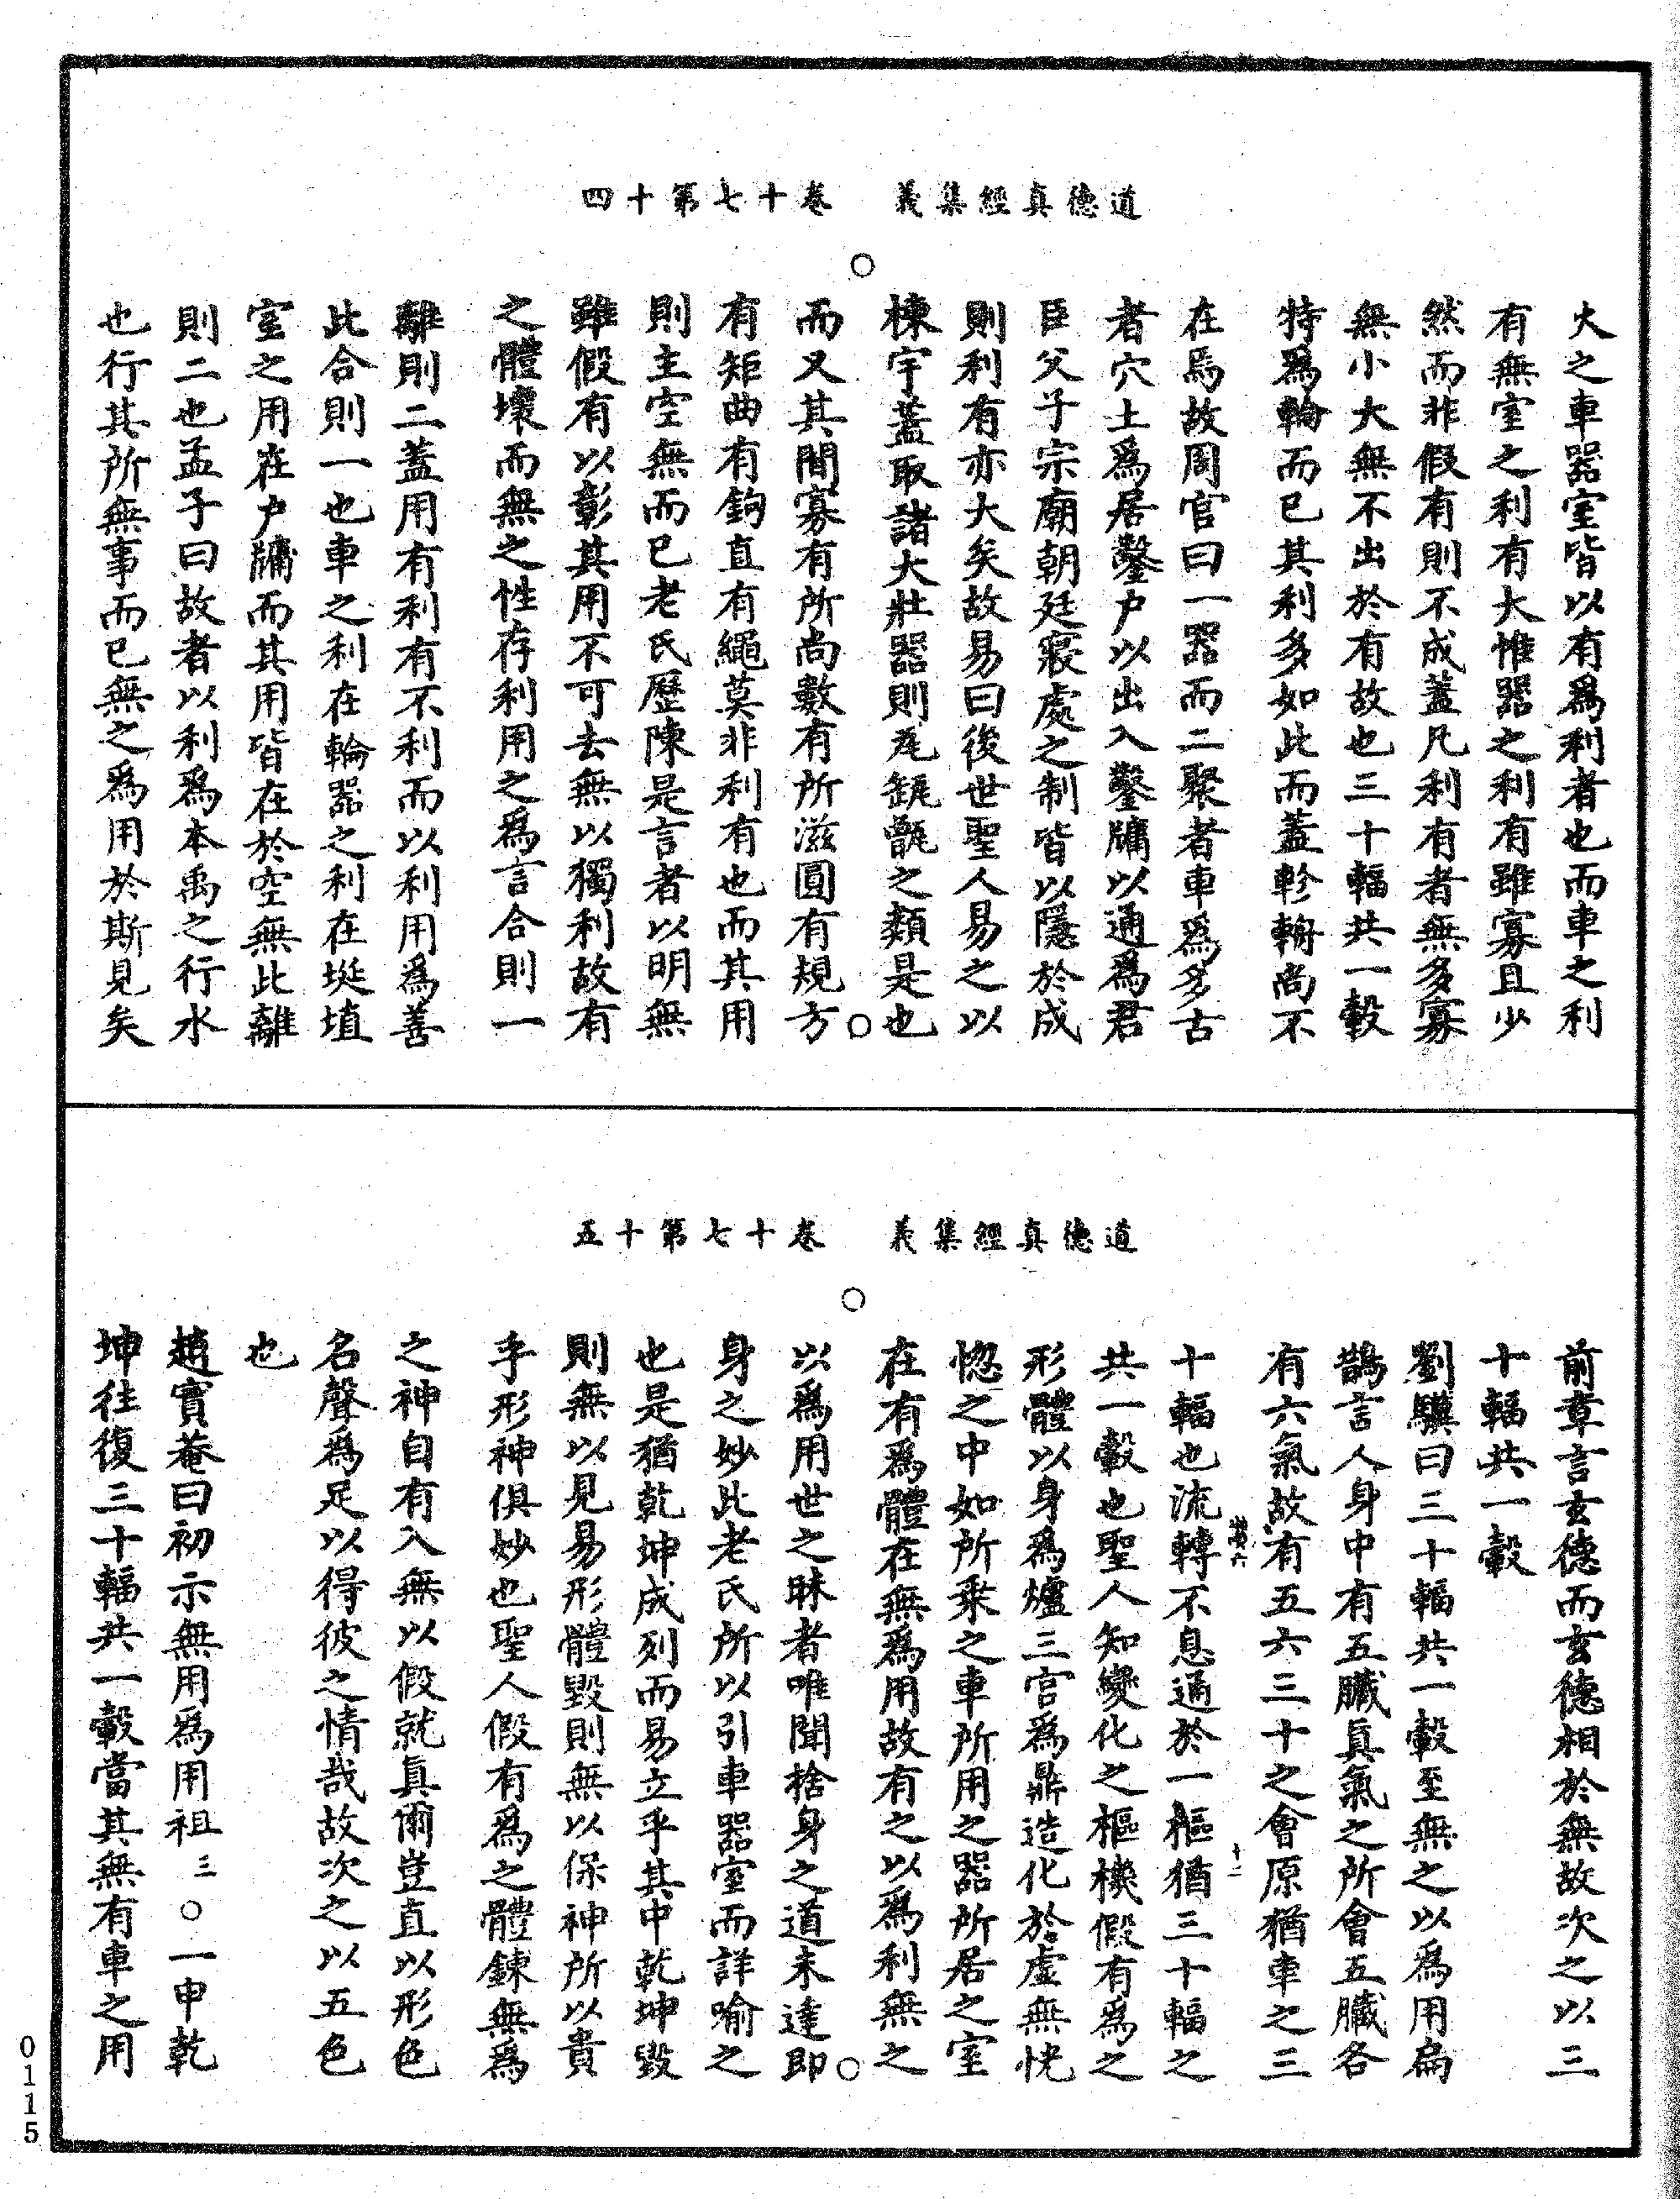 道德真經集義　卷十七第十四
大之車器室皆以有爲利者也而車之利
有無室之利有大惟器之利有雖寡且少
然而非假有則不成蓋凡利有者無多寡
無小大無不出於有故也三十輻共一轂
特爲輪而已其利多如此而蓋軫輈尚不
在焉故周官曰一器而二聚者車爲多古
者穴土爲居鑿户以出入鑿牖以通爲君
臣父子宗廟朝廷寢處之制皆以隱於成
則利有亦大矣故易曰後世聖人易之以
棟宇蓋取諸大壯器則瓬甑之類是也
而又其間寡有所尚數有所滋圓有規方
有矩曲有鉤直有繩莫非利有也而其用
則主空無而已老氏歷陳是言者以明無
雖假有以彰其用不可去無以獨利故有
之體壞而無之性存利用之爲言合則一
離則二蓋用有利有不利而以利用爲善
此合則一也車之利在輪器之利在埏埴
室之用在户牖而其用皆在於空無此離
則二也孟子曰故者以利爲本禹之行水
也行其所無事而已無之爲用於斯見矣
道德真經集義　卷十七第十五
前章言玄德而玄德相於無故次之以三
十輻共一轂
劉驥曰三十輻共一轂至無之以爲用扁
鵲言人身中有五臟真氣之所會五臟各
有六氣故有五六三十之會原猶車之三
十輻也流轉不息通於一樞猶三十輻之
十二
共一轂也聖人知變化之樞機假有爲之
形體以身爲爐三宫爲鼎造化於虛無恍
惚之中如所乘之車所用之器所居之室
在有爲體在無爲用故有之以爲利無之
以爲用世之昧者唯聞捨身之道未達即
身之妙此老氏所以引車器室而詳喻之
也是猶乾坤成列而易立乎其中乾坤毀
則無以見易形體毀則無以保神所以貴
乎形神俱妙也聖人假有爲之體鍊無爲
之神自有入無以假就真爾豈直以形色
名聲爲足以得彼之情哉故次之以五色
也
趙實菴曰初示無用爲用祖三○一申乾
坤往復三十輻共一轂當其無有車之用
0115